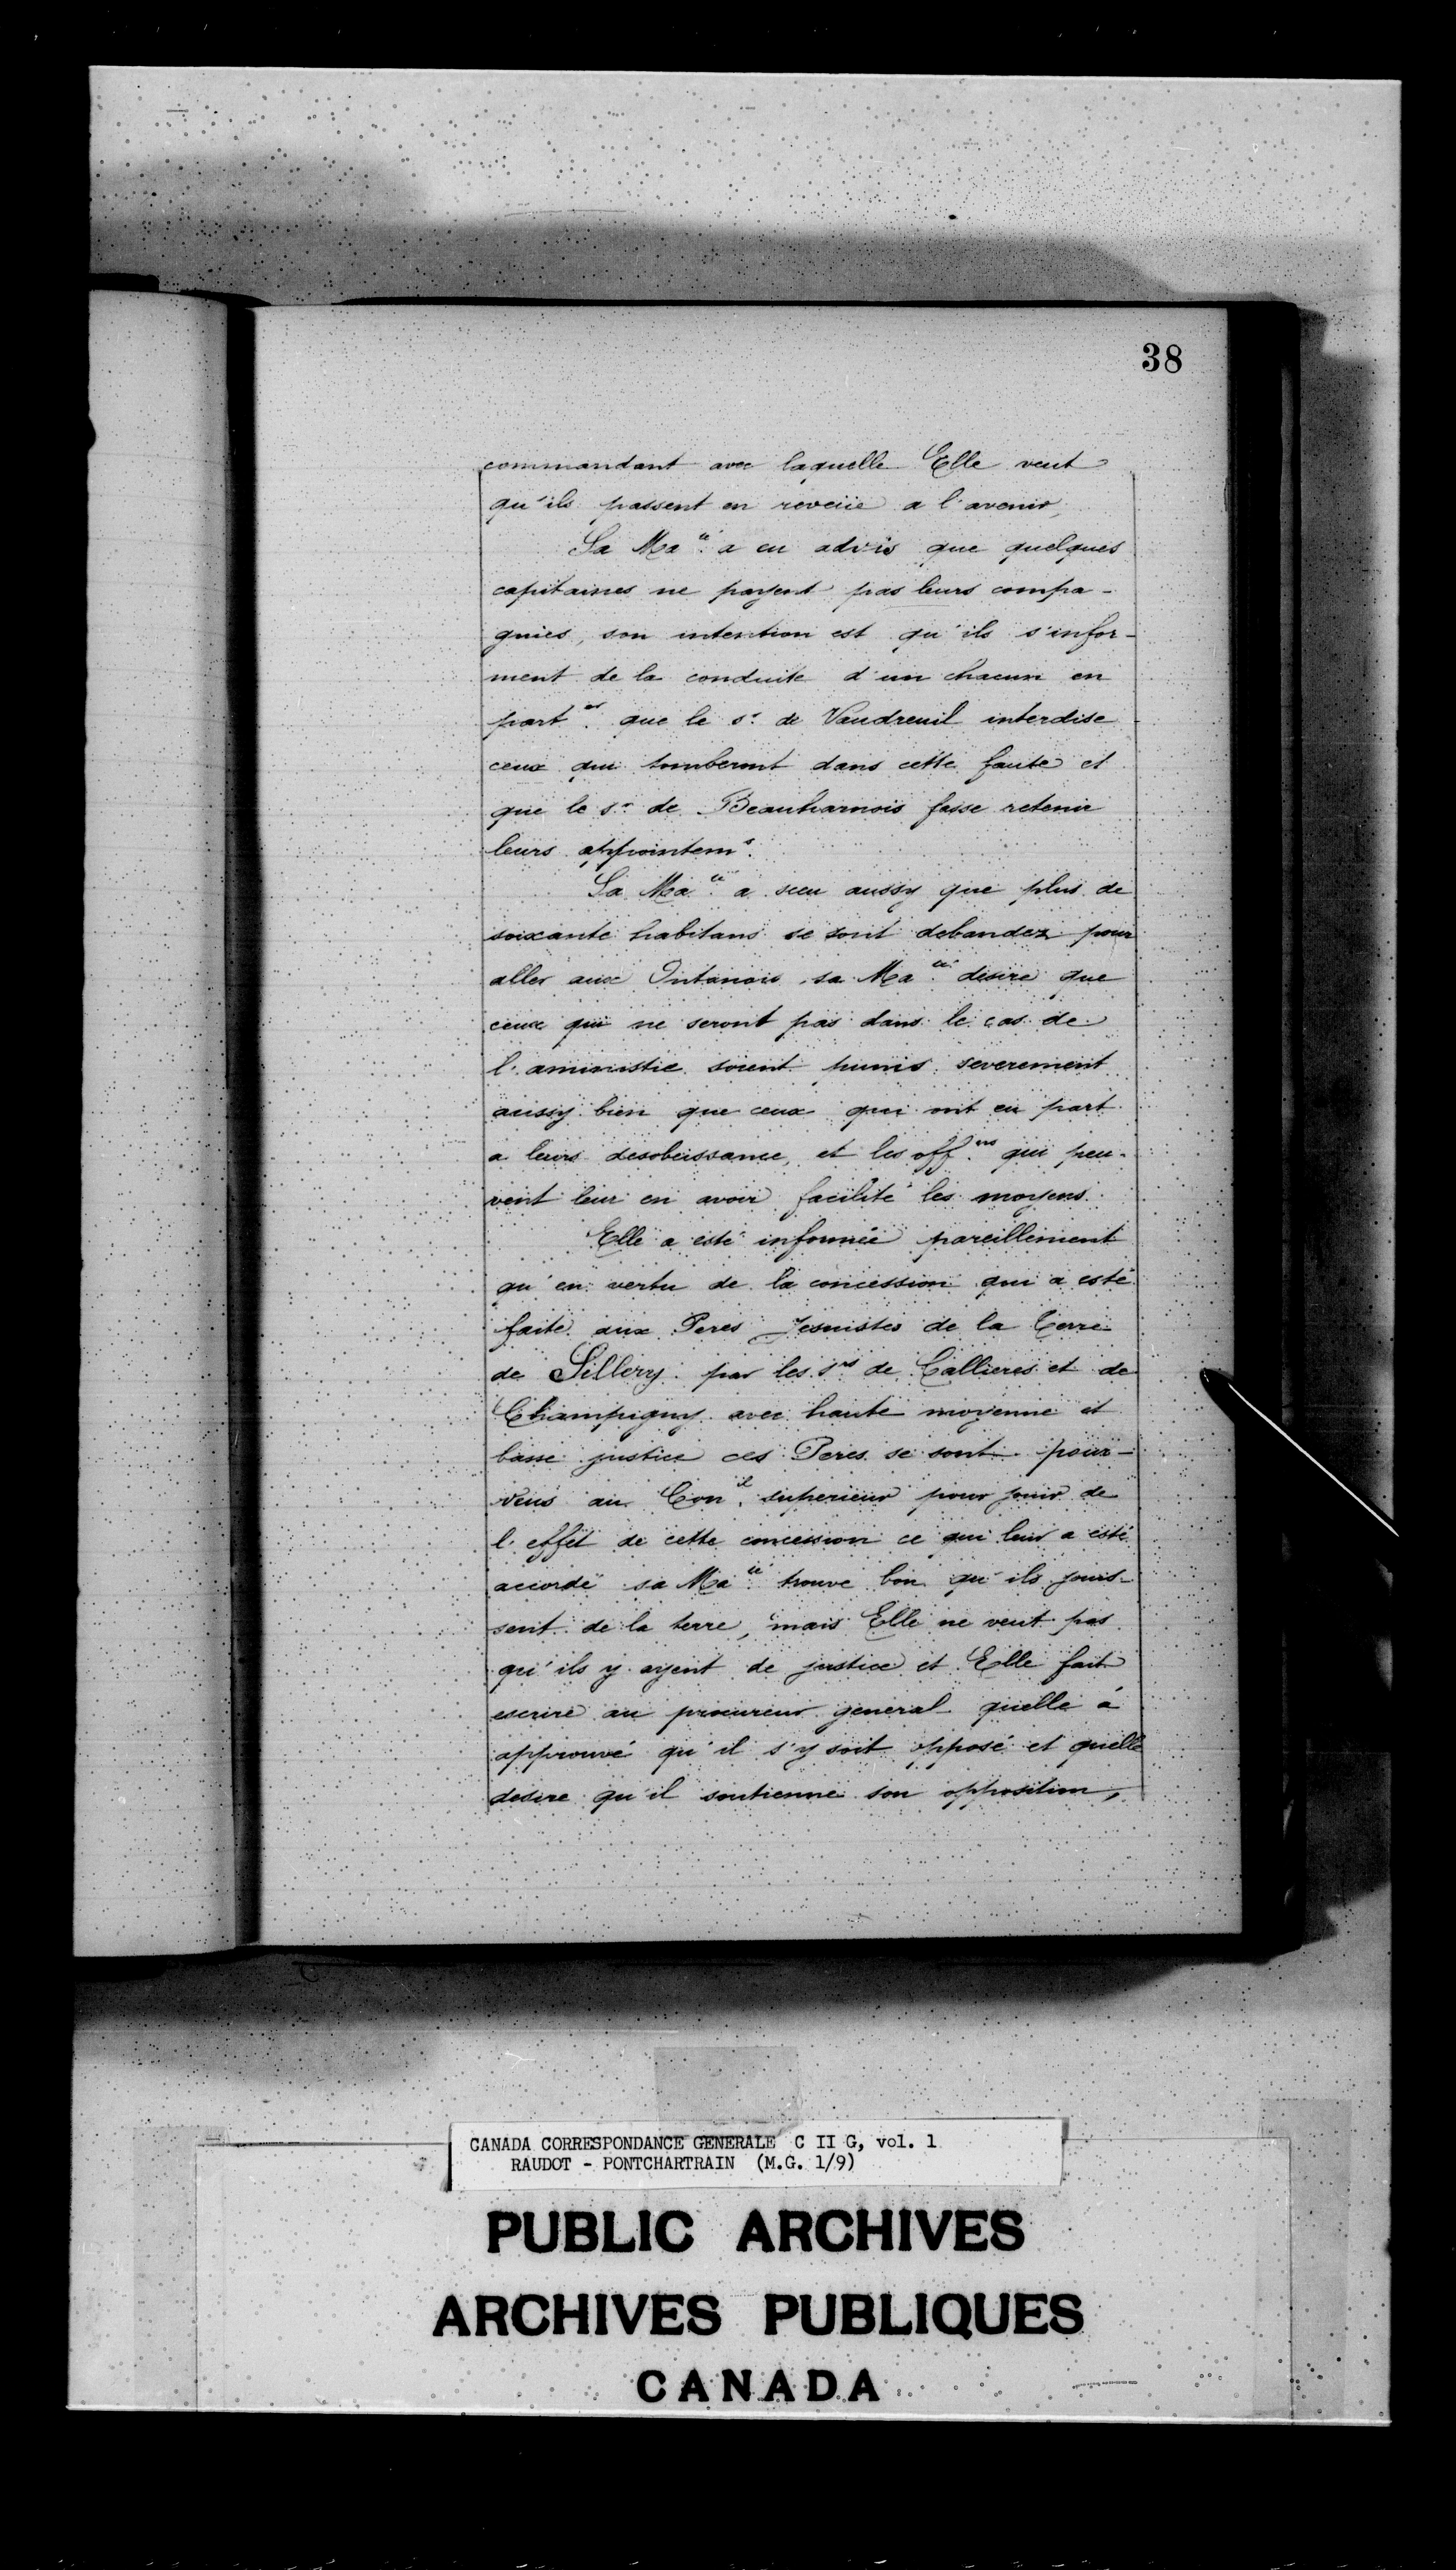 38
commandant avec laquelle Elle veut
qu'ils passent en reveüe a l'avenir,
Sa Ma.té a eu advis que quelques
capitaines ne payent pas leurs compa-
gnies, son intention est qu'ils s'infor-
ment de la conduite d'un chacun en
part.er que le s.r de Vaudreuil interdise
ceux qui tomberont dans cette faute et
que le s.r de Beauharnois fasse retenir
leurs appointem.s
Sa Ma.té a sceu aussy que plus de
soixante habitans se sont debandez pour
aller aux Outanois, sa Ma.té desire que
ceux qui ne seront pas dans le cas de
l'aministie soient punis severement
aussy bien que ceux qui ont eu part
a leurs desobeissance, et les off.ers qui peu-
vent leur en avoir facilité les moyens.
Elle a esté informée pareillement
qu'en vertu de la concession qui a esté
faite aux Peres Jesuistes de la Terre
de Sillery par les s.rs de Callieres et de
Champigny avec haute moyenne et
basse justice ces Peres se sont pour-
veus au Con.il superieur pour jouir de
l'effet de cette concession ce qui leur a esté
accordé sa Ma.té trouve bon qu'ils jouis-
sent de la terre, mais Elle ne veut pas
qu'ils y ayent de justice et Elle fait
escrire au procureur general quelle á
approuvé qu'il s'y soit opposé et quelle
desire qu'il soutienne son opposition,
CANADA CORRESPONDANCE GENERALE C II G, vol. 1
RAUDOT - PONTCHARTRAIN (M.G. 1/9)
PUBLIC ARCHIVES
ARCHIVES PUBLIQUES
CANADA